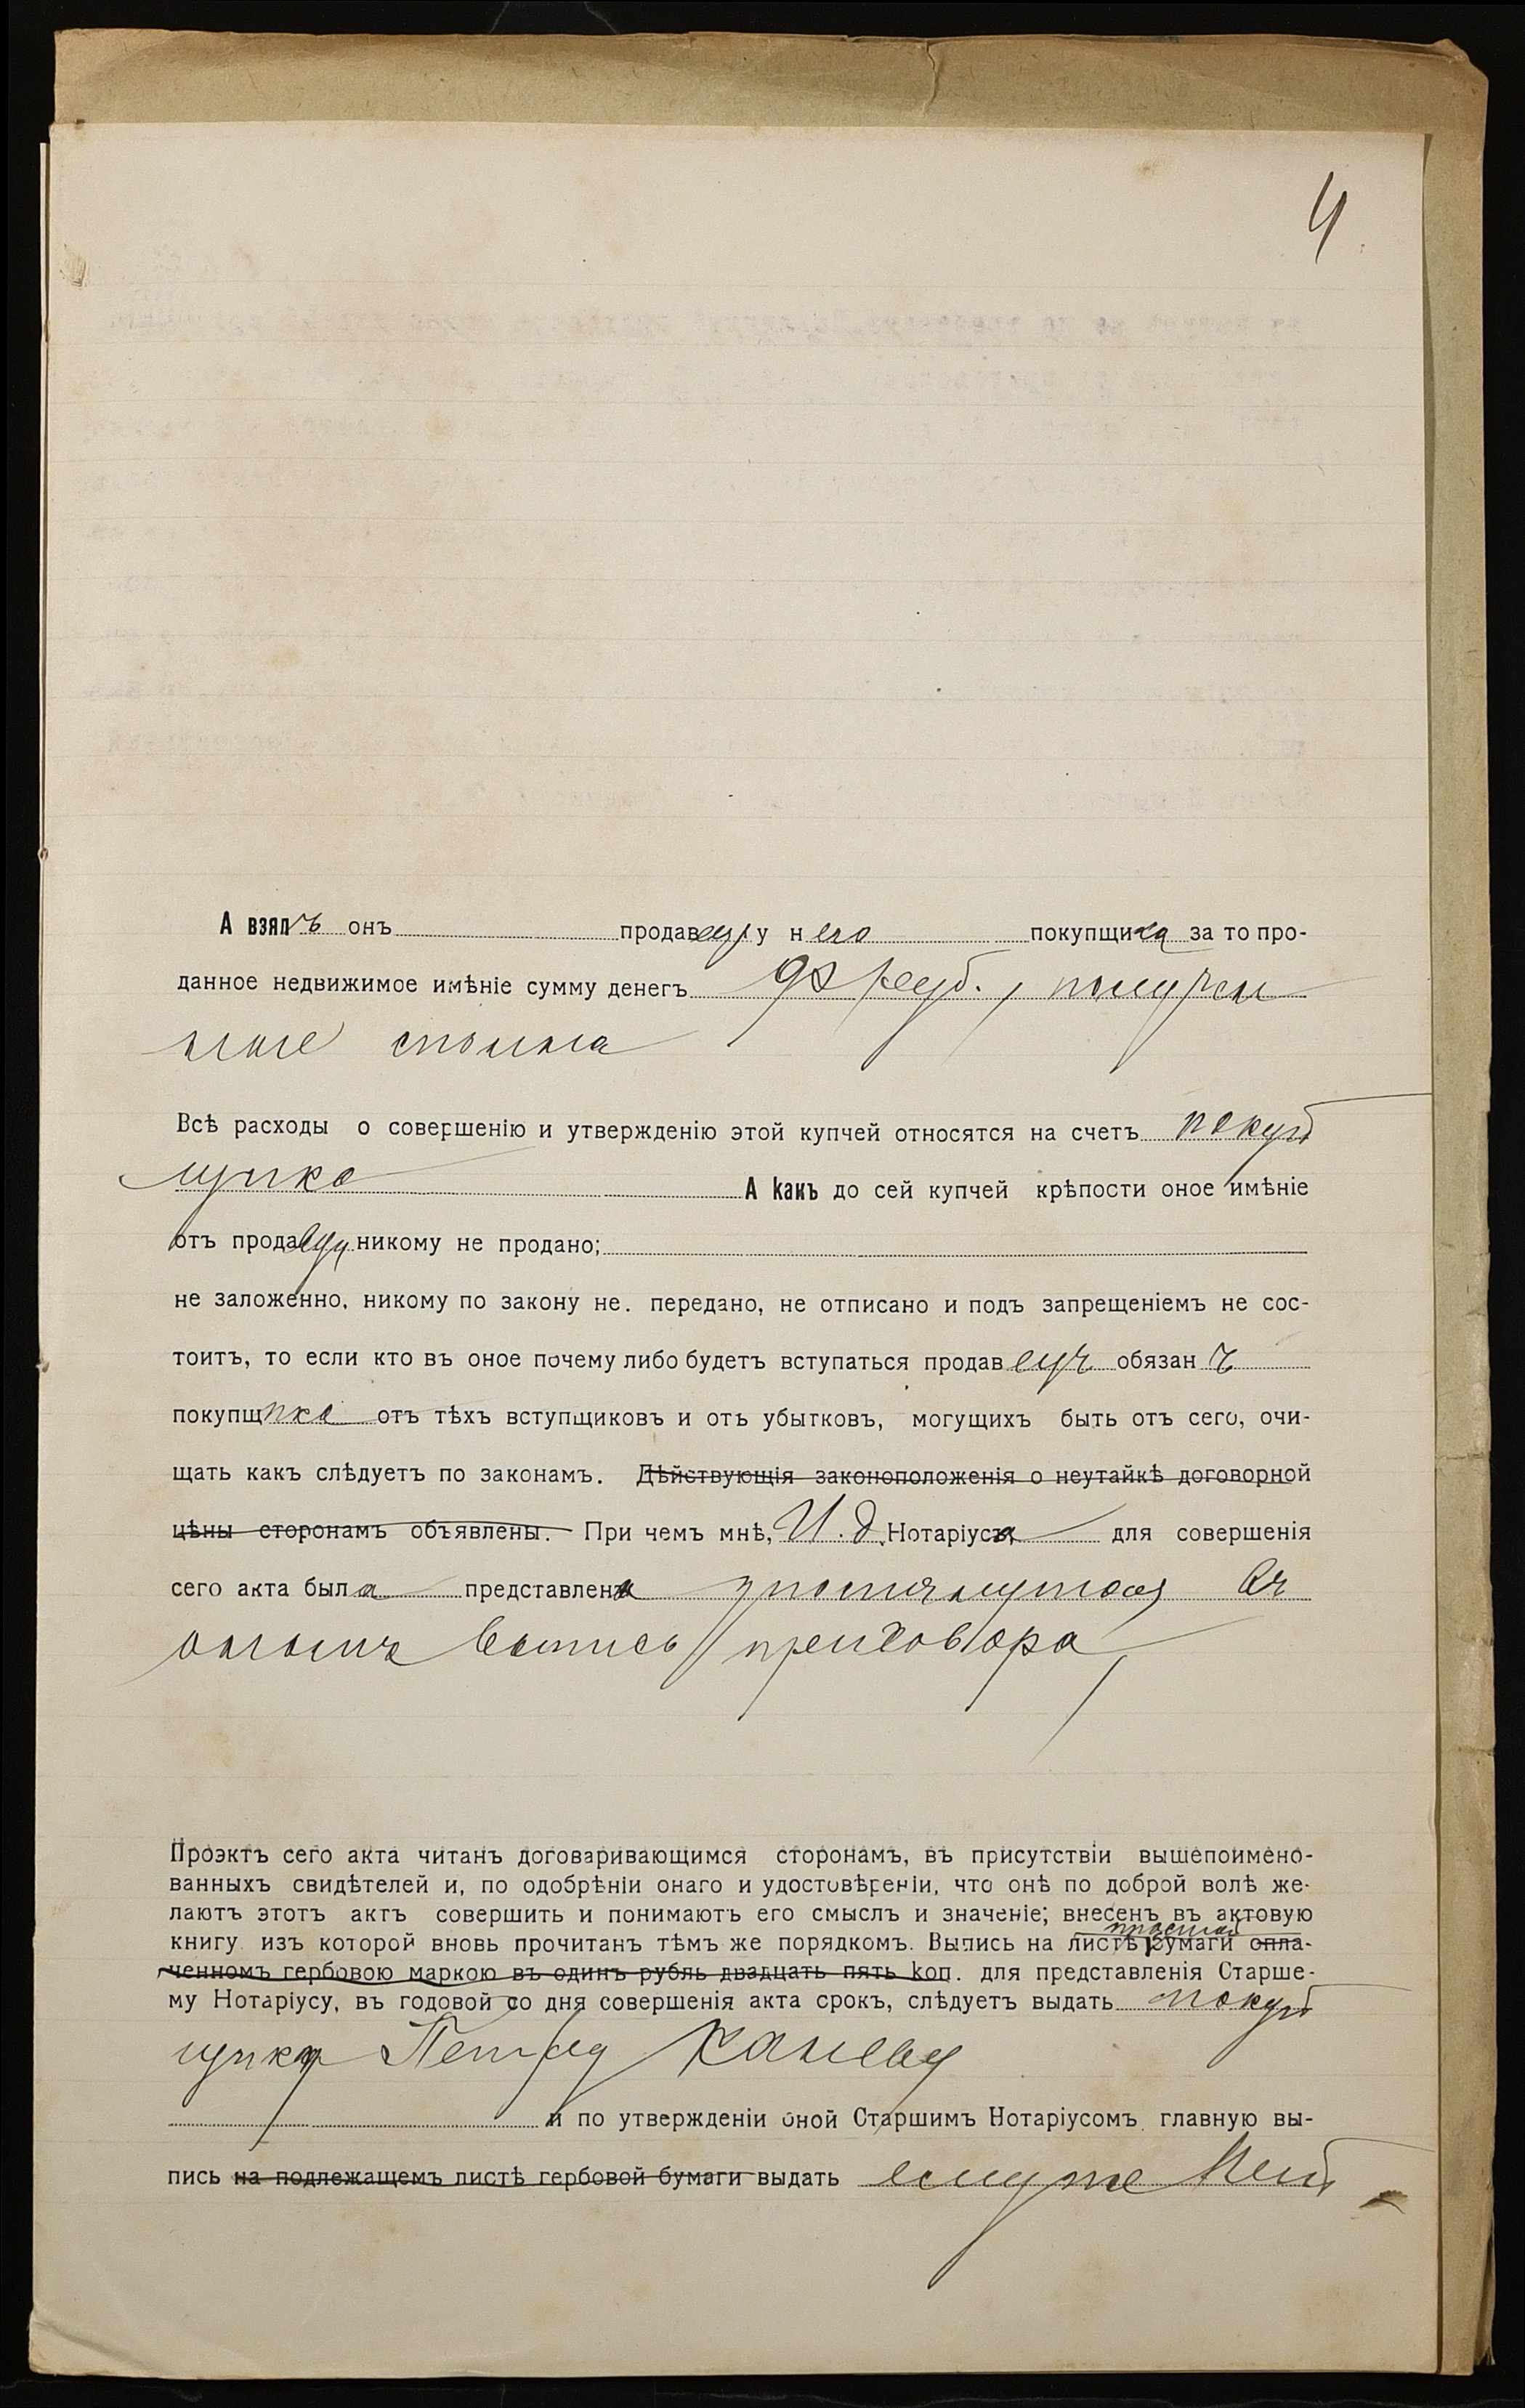 4
А взялъ онъ продавецъ у него покупщика за то про-
данное недвижимое имѣніе сумму денегъ 98 руб., получен
ные сполна
Всѣ расходы о совершенію и утвержденію этой купчей относятся на счетъ покуп
щика А какъ до сей купчей крѣпости оное имѣніе
отъ продавца никому не продано;
не заложенно, никому по закону не. передано, не отписано и подъ запрещеніемъ не сос-
тоитъ, то если кто въ оное почему либо будетъ вступаться продавецъ обязанъ
покупщика отъ тѣхъ вступщиковъ и отъ убытковъ, могущихъ быть отъ сего, очи-
щать какъ слѣдуетъ по законамъ. Дѣйствующія законоположенія о неутайкѣ договорной
цѣны сторонамъ объявлены. При чемъ мнѣ, И. д. Нотаріуса для совершенія
сего акта была представлена упомянутая въ
ономъ выпись приговора
Проэктъ сего акта читанъ договаривающимся сторонамъ, въ присутствіи вышепоимено-
ванныхъ свидѣтелей и, по одобрѣніи онаго и удостовѣреніи, что онѣ по доброй волѣ же-
лаютъ этотъ актъ совершить и понимаютъ его смыслъ и значеніе; внесенъ въ актовую
простой
книгу изъ которой вновь прочитанъ тѣмъ же порядкомъ. Выпись на листѣ бумаги опла-
ченномъ гербовою маркою въ одинъ рубль двадцать пять коп. для представленія Старше-
му Нотаріусу, въ годовой со дня совершенія акта срокъ, слѣдуетъ выдать покуп
щику Петру Каневу
и по утвержденіи оной Старшимъ Нотаріусомъ главную вы-
пись на подлежащемъ листѣ гербовой бумаги выдать ему же